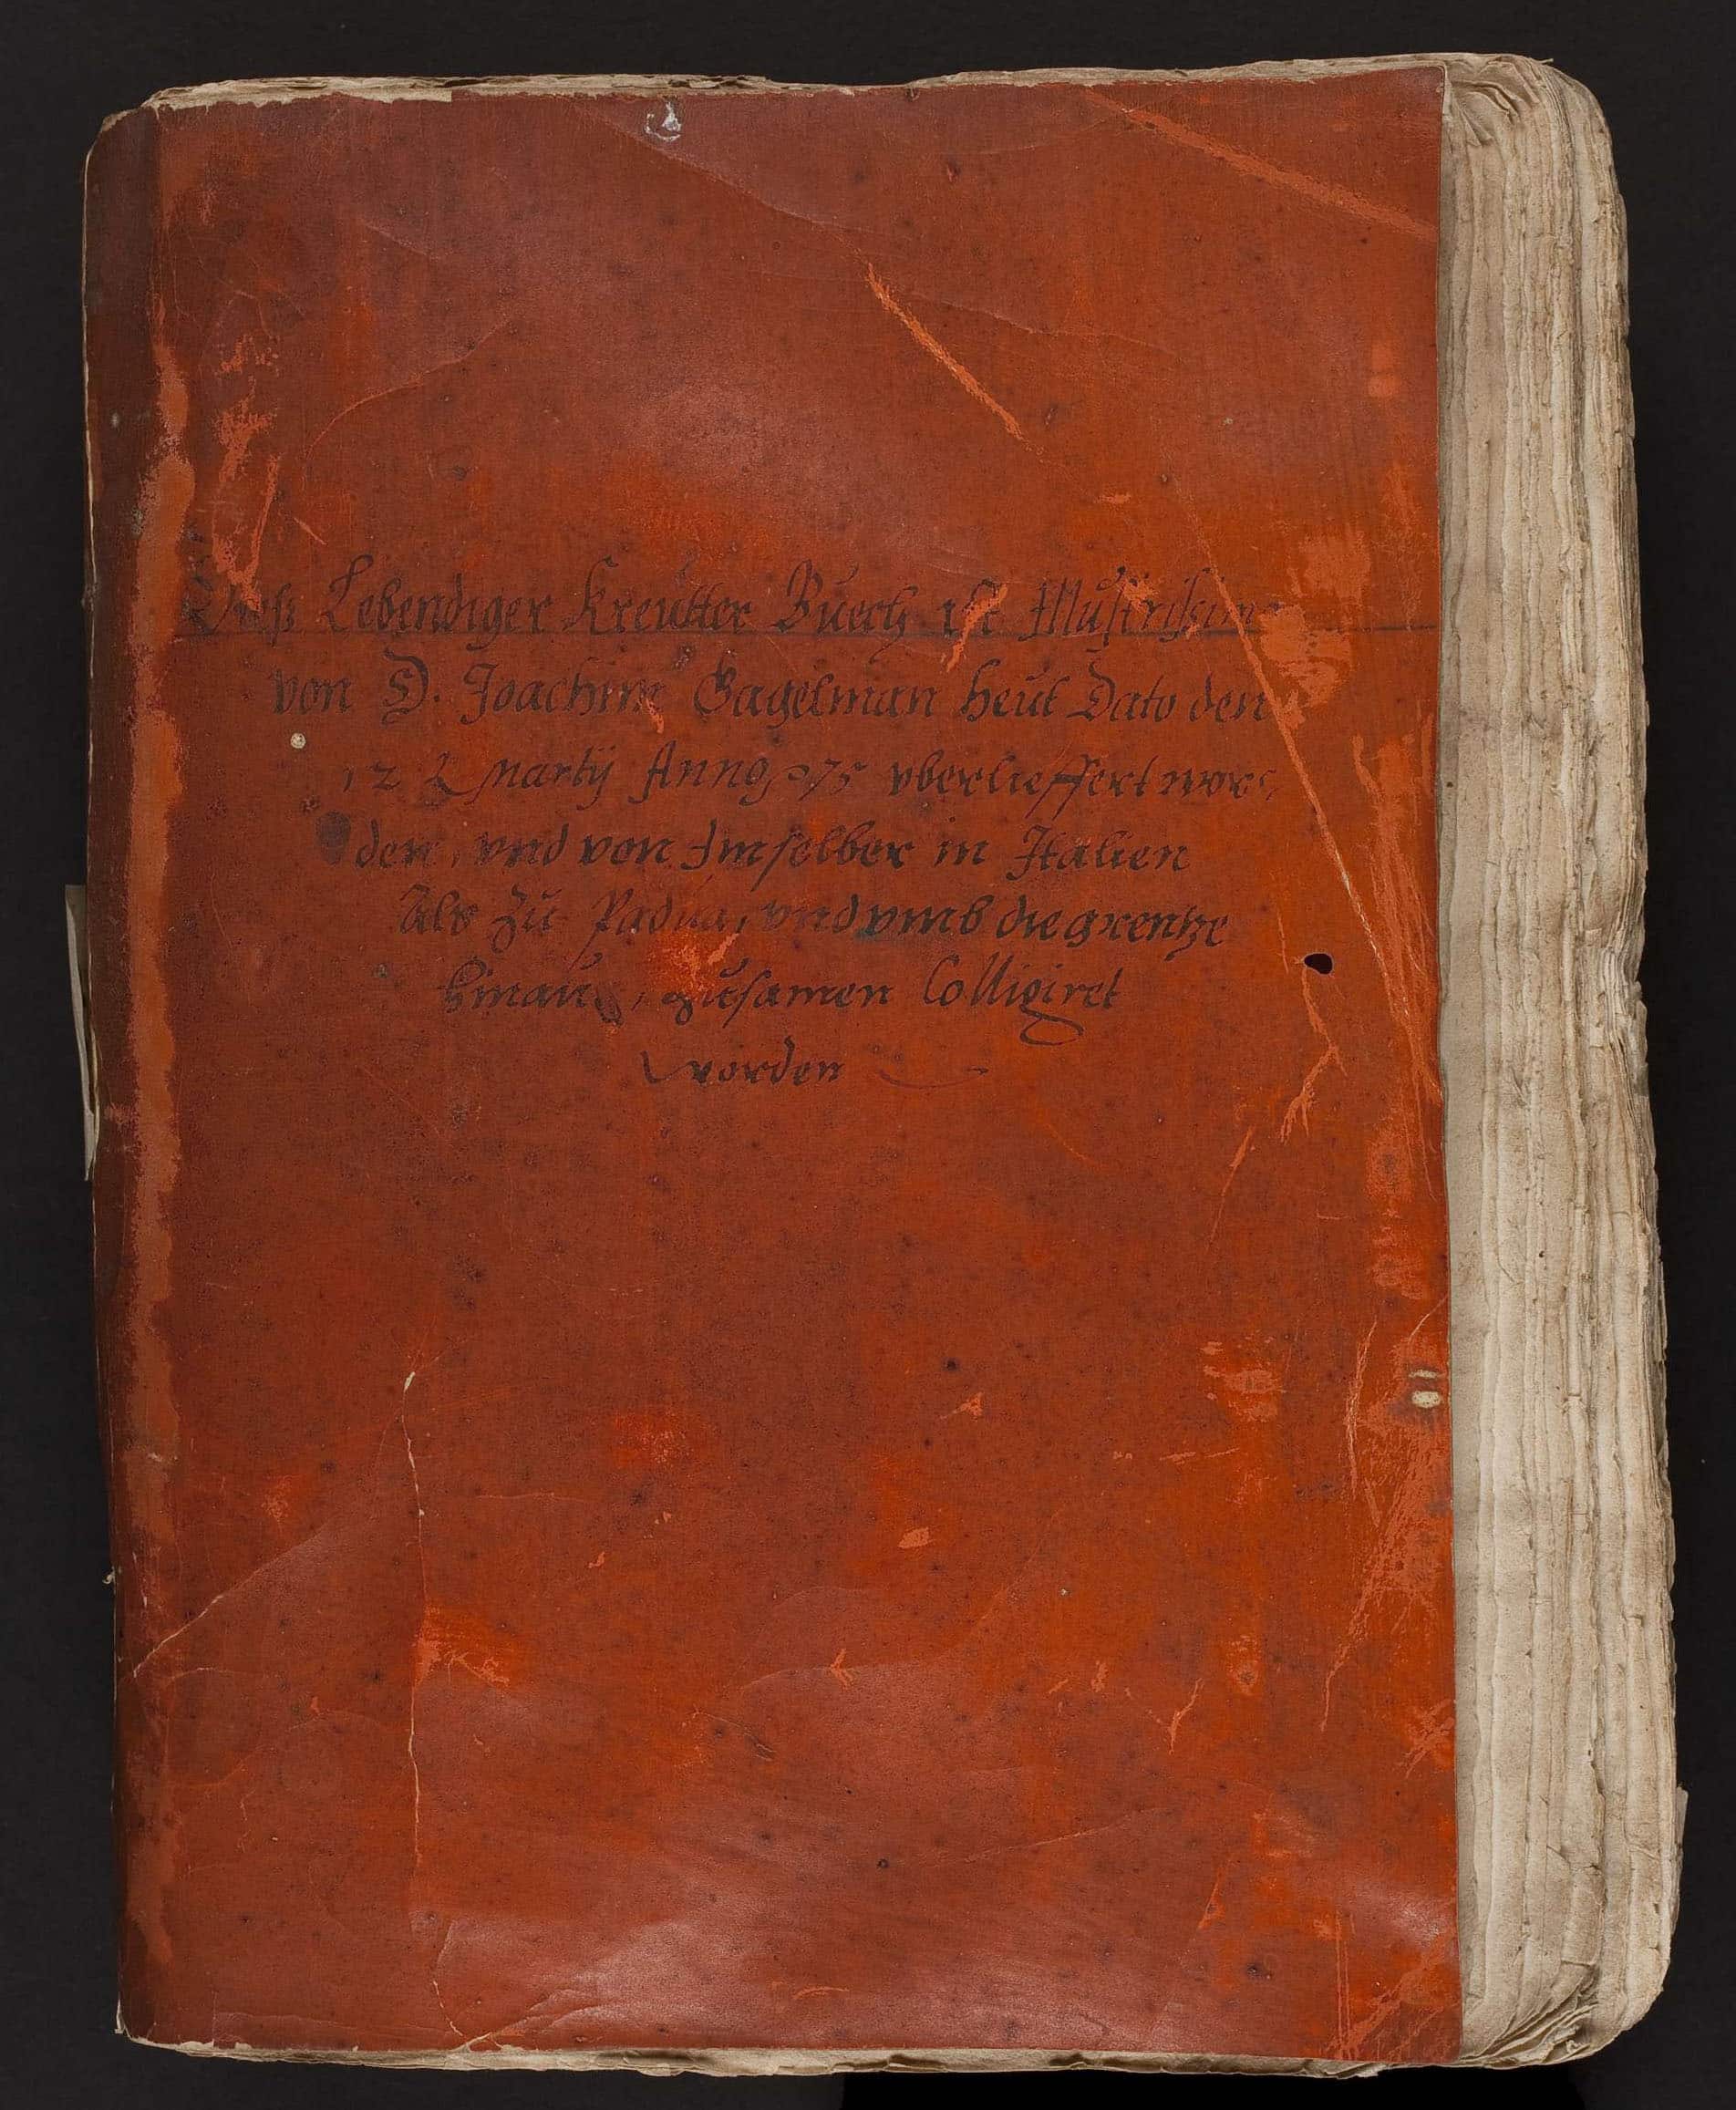 Diß Lebendiger Kreütter Buech ist Illustrissimo
von D. Joachim Gagelman heut Dato den
12 Martÿ Anno 75 vberlieffert wor
den, vnd von Im selber in Italien
Als zu Padua, vnd vmb die grentze
hinauß, zusamen Colligiret
worden